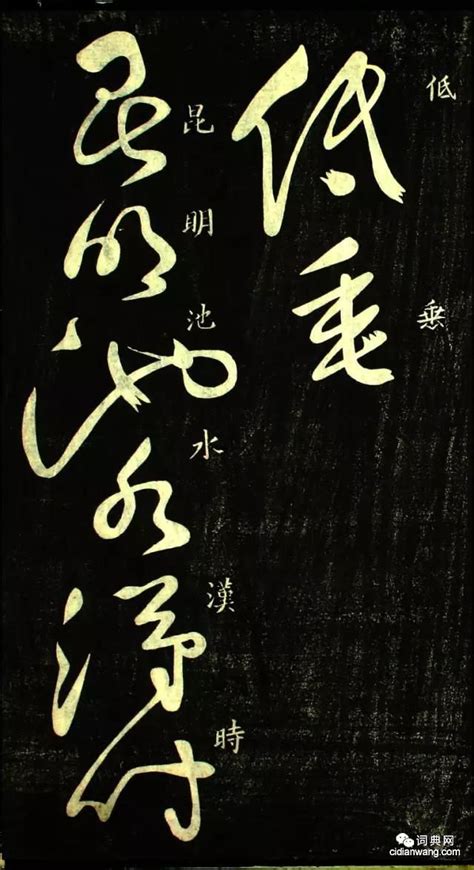 低垂
低
垂
昆明池水漢時
昆
明
池
水
漢
時
词典网
cidianwang.com